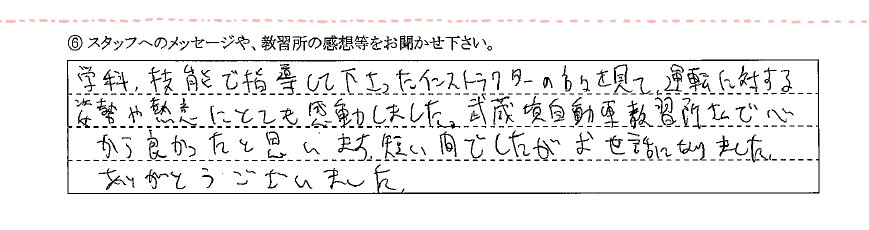 ⑥ スタッフへのメッセージや、教習所の感想等をお聞かせ下さい。
学科、技能で指導して下さったインストラクターの方々を見て、運転に対する
姿勢や熱意にとても感動しました。武蔵境自動車教習所さんで心
から良かったと思います。短い間でしたがお世話になりました。
ありがとうございました。